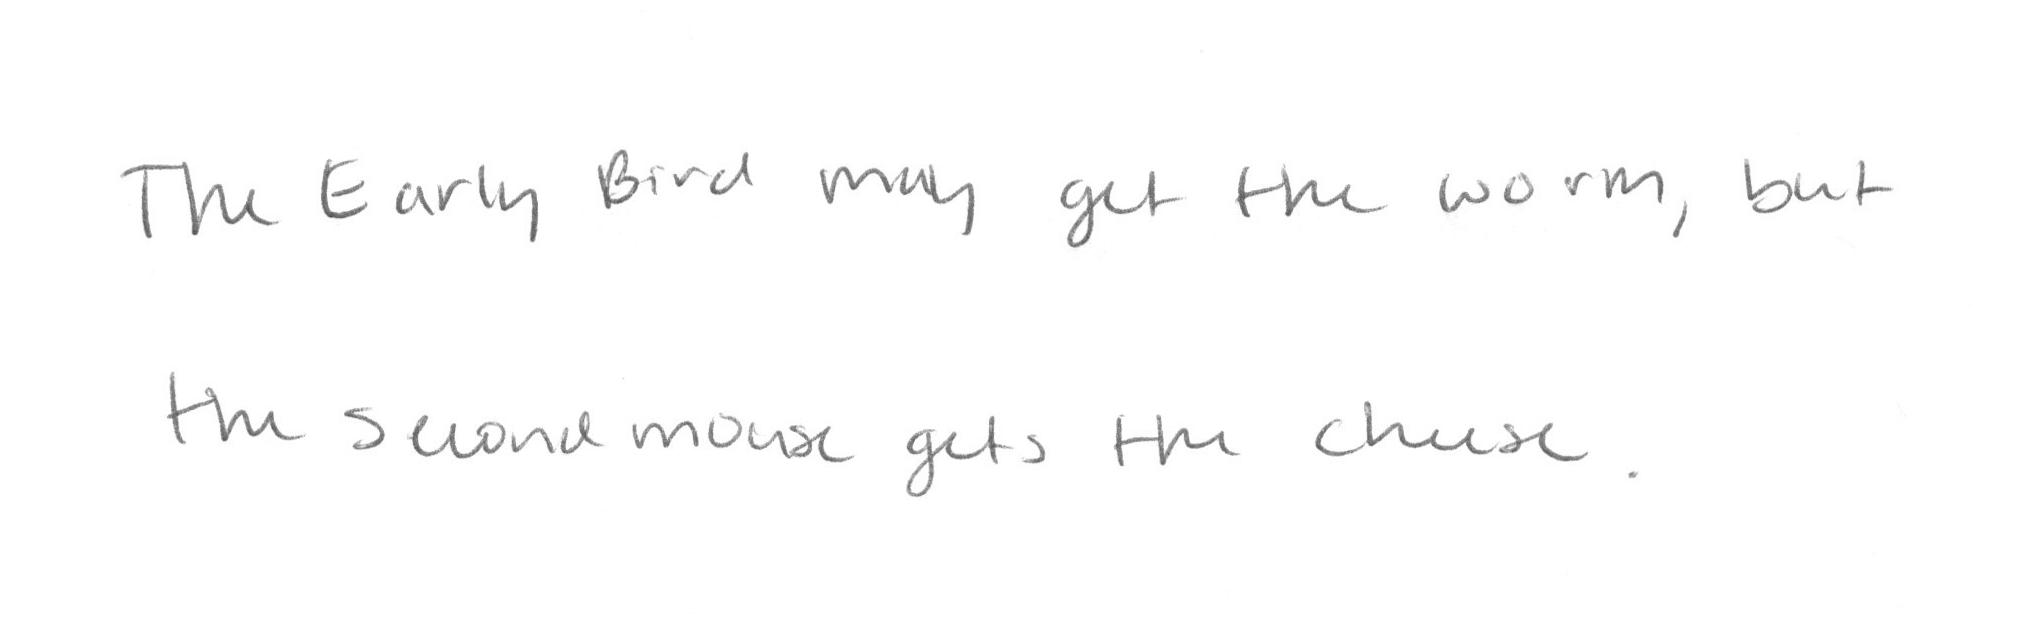 The Early Bird may get the worm, but
the second mouse gets the cheese.